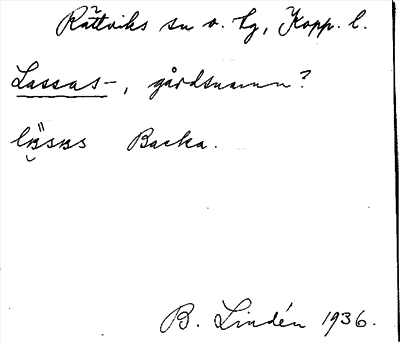 Rättviks sn o. hg, Kopp. l.
Lassas-, gårdsnamn?
Backa.
B. Lindén 1936.